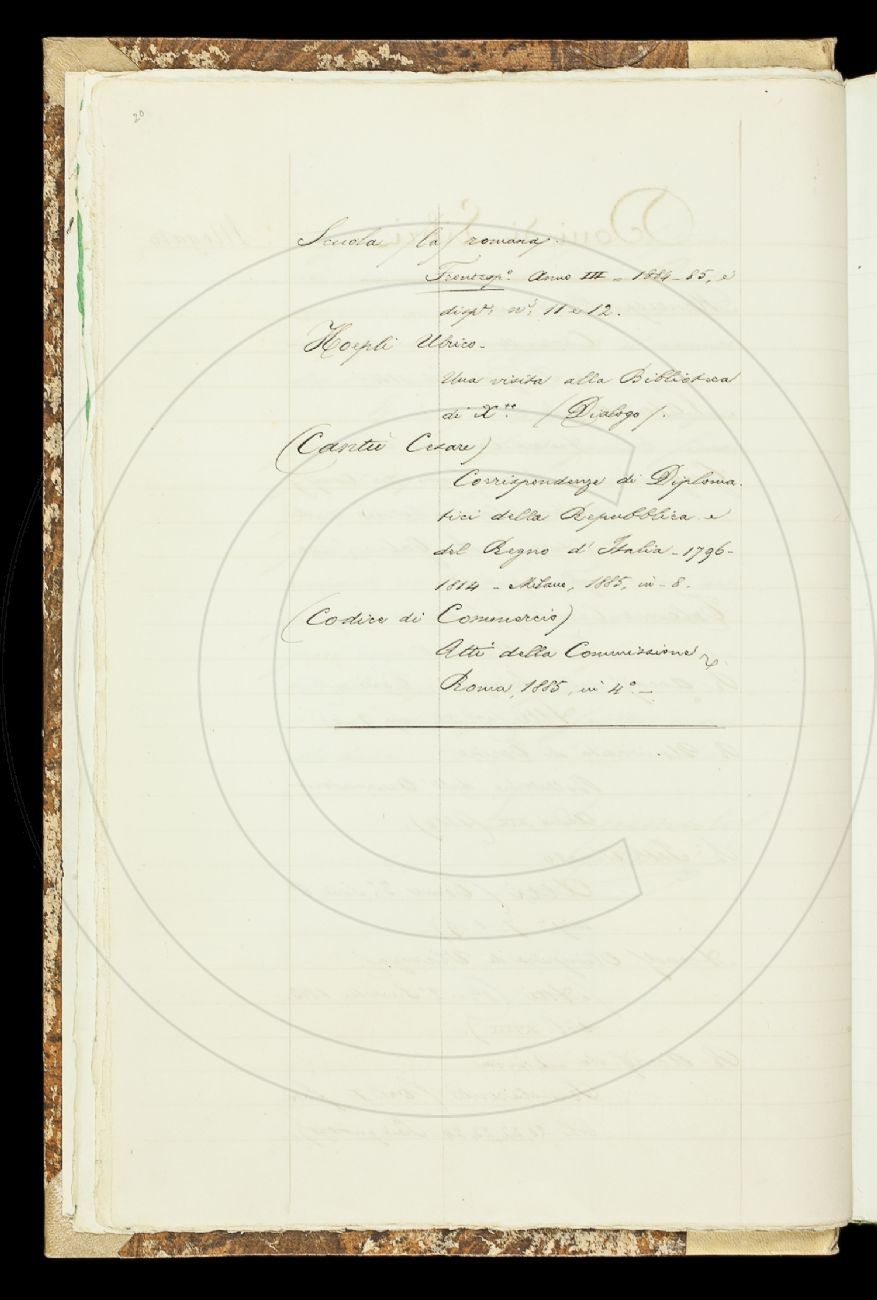 20
Scuola (la) romana.
Frontesp.º Anno III - 1884-85, e
disp.e n.i 11 e 12.
Hoepli Ulrico -
Una visita alla Biblioteca
di X.** (Dialogo).
(Cantù Cesare)
Corrispondenze di Diploma-
tici della Repubblica e
del Regno d'Italia - 1796-
1814 - Milano, 1885, in-8.
(Codice di Commercio)
Atti della Commissione
Roma, 1885, in 4º. -